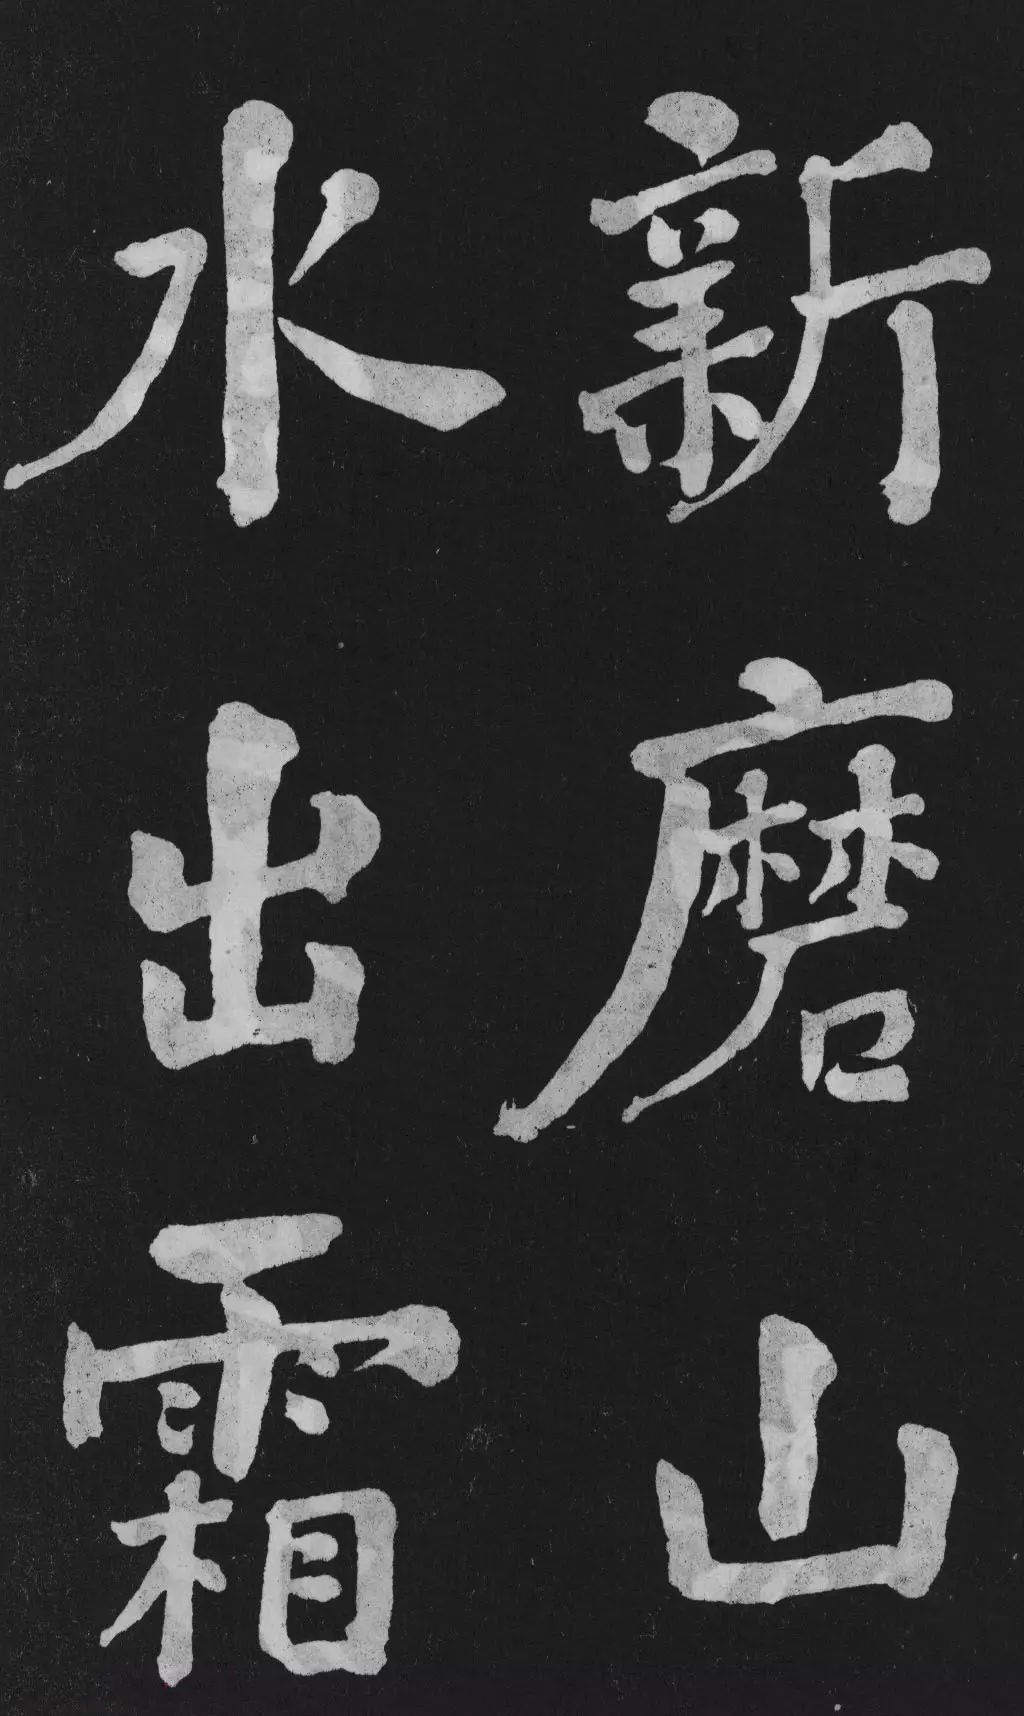 新磨山
水出霜